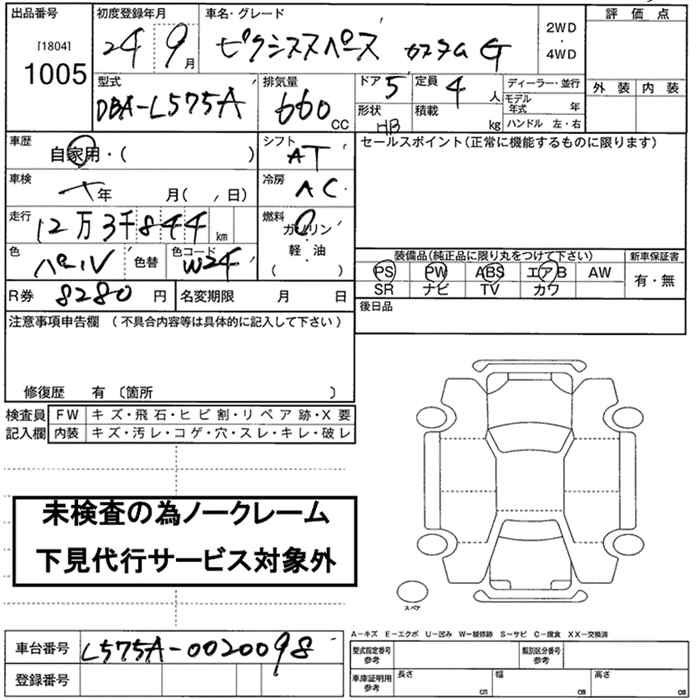 出品番号 初度登録年月 車名・グレード 2WD・4WD 評価点
[1804]
1005 24 9月 ピクシススペース カスタムG
型式 排気量 ドア 5 定員 4人 ディーラー・並行 外装 内装
DBA-L575A 660cc 形状 HB 積載 kg モデル年式 年
ハンドル 左・右
車歴 自家用・( ) シフト AT セールスポイント(正常に機能するものに限ります)
車検 年 月( , 日) 冷房 AC
走行 12万3千844km 燃料 ガソリン
軽・油
( )
色 パール 色替 色コード W24 装備品(純正品に限り丸をつけて下さい) 新車保証書
PS PW ABS エアB AW 有・無
SR ナビ TV カワ
R券 8280円 名変期限 月 日 後日品
注意事項申告欄 (不具合内容等は具体的に記入して下さい)
修復歴 有 〔箇所 〕
検査員 FW キズ・飛石・ヒビ割・リペア跡・X要
記入欄 内装 キズ・汚レ・コゲ・穴・スレ・キレ・破レ
未検査の為ノークレーム
下見代行サービス対象外
スペア
A-キズ E-エクボ U-凹み W-補修跡 S-サビ C-腐食 XX-交換済
車台番号 L575A-0020098 型式指定番号 参考 類別区分番号 参考
登録番号 車庫証明用 参考 長さ cm 幅 cm 高さ cm